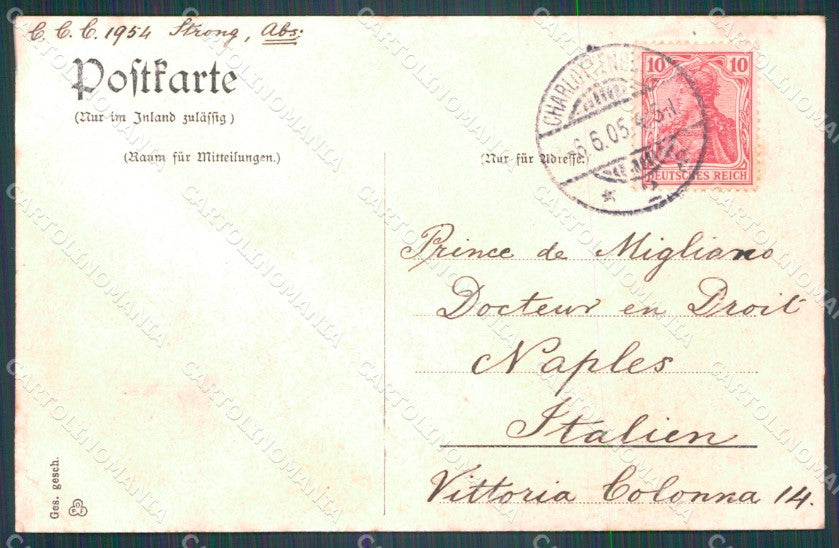 C. C. C. 1954 Strong, Abs:
Postkarte
(Nur im Inland zulässig)
(Raum für Mitteilungen.)
(Nur für Adresse.
10 10
DEUTSCHES REICH
6.6.05.
Prince de Migliano
Docteur en Droit
Naples
Italien
Vittoria Colonna 14.
Ges. gesch.
CARTOLINOMANIA